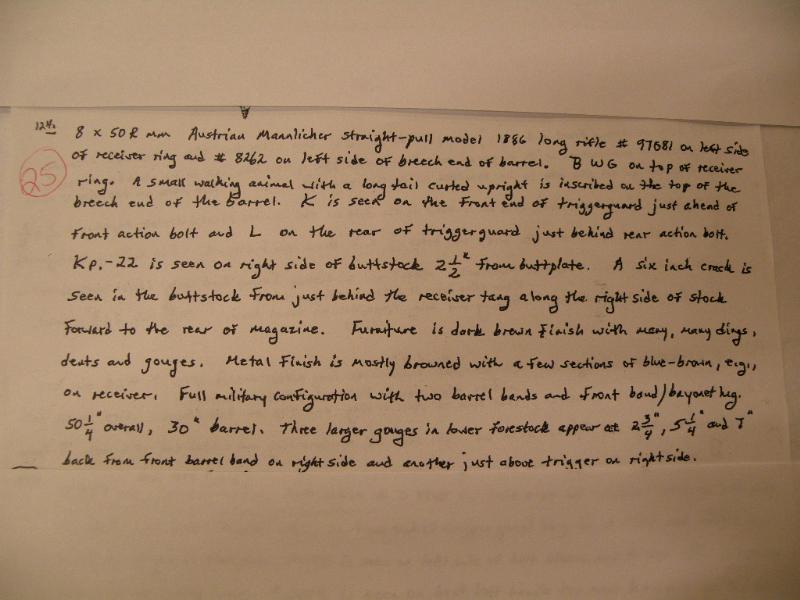 124.
25
8 x 50R mm Austrian Mannlicher straight-pull model 1886 long rifle # 97681 on left side
of receiver ring and # 8262 on left side of breech end of barrel. B W G on top of receiver
ring. A small walking animal with a long tail curled upright is inscribed on the top of the
breech end of the barrel. K is seen on the front end of triggerguard just ahead of
front action bolt and L on the rear of triggerguard just behind rear action bolt.
Kp.-22 is seen on right side of buttstock 2 1/2" from buttplate. A six inch crack is
seen in the buttstock from just behind the receiver tang along the right side of stock
forward to the rear of magazine. Furniture is dark brown finish with many, many dings,
dents and gouges. Metal finish is mostly browned with a few sections of blue-brown, e.g.,
on receiver. Full military configuration with two barrel bands and front band/bayonet lug.
50 1/4" overall, 30" barrel. Three larger gouges in lower forestock appear at 2 3/4", 5 1/4" and 7"
back from front barrel band on right side and another just above trigger on right side.